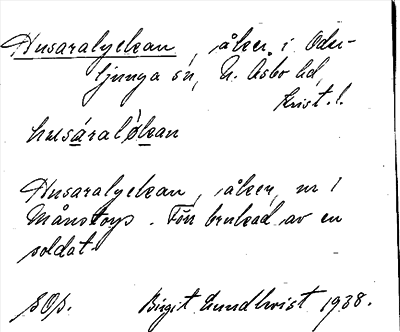 Husaralyckan, åker i Oder-
ljunga sn, N. Åsbo hd,
Krist. l.
husáralỳkan
Husaralyckan, åker, nr 1
Månstorp. Förr brukad av en
soldat.
Birgit Lundkvist 1938.